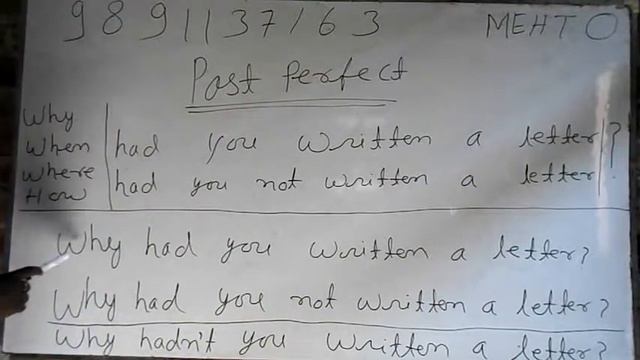 9891137163 MEHTO
Past Perfect
Why
When had you written a letter ?
Where had you not written a letter
How
Why had you written a letter?
Why had you not written a letter?
Why hadn't you written a letter?